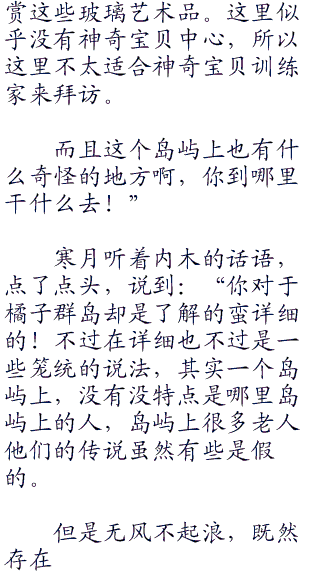 赏这些玻璃艺术品。这里似
乎没有神奇宝贝中心，所以
这里不太适合神奇宝贝训练
家来拜访。
而且这个岛屿上也有什
么奇怪的地方啊，你到哪里
干什么去！”
寒月听着内木的话语，
点了点头，说到：“你对于
橘子群岛却是了解的蛮详细
的！不过在详细也不过是一
些笼统的说法，其实一个岛
屿上，没有没特点是哪里岛
屿上的人，岛屿上很多老人
他们的传说虽然有些是假
的。
但是无风不起浪，既然
存在